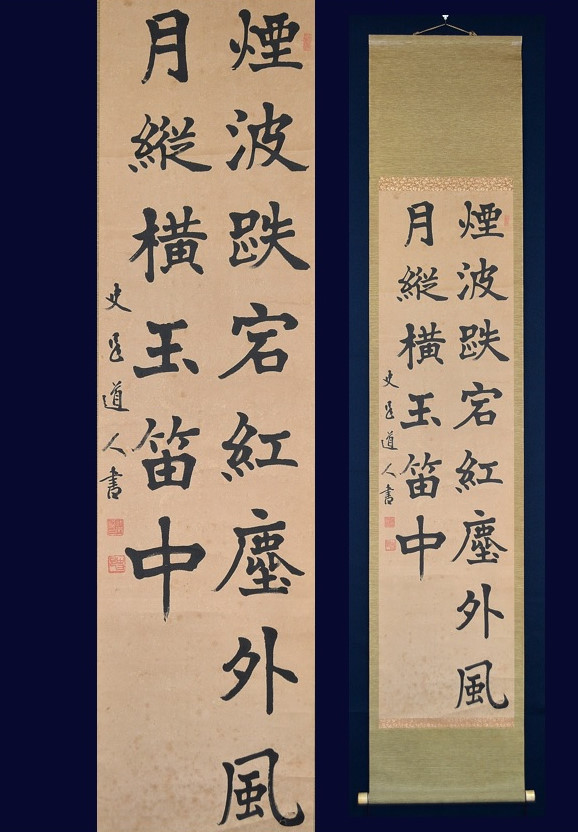 煙波跌宕紅塵外風
月縱橫玉笛中
道人書
煙波跌宕紅塵外風
月縱橫玉笛中
道人書